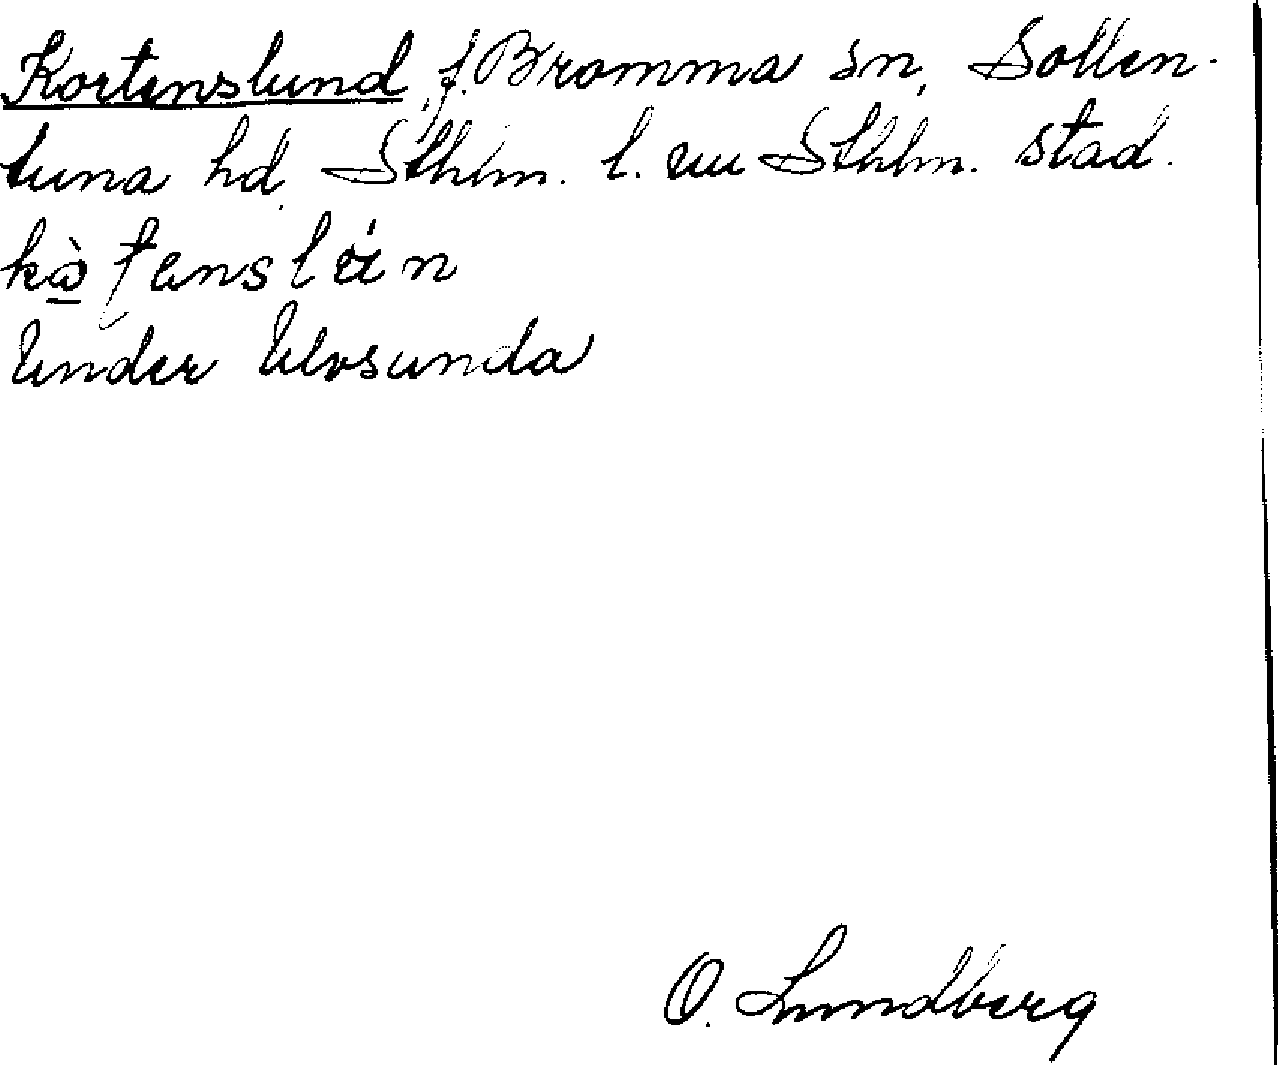 Kortenslund, f. Bromma sn, Sollen-
tuna hd. Sthlm. l. nu Sthlm. stad.
Under Ulvsunda
O. Lundberg